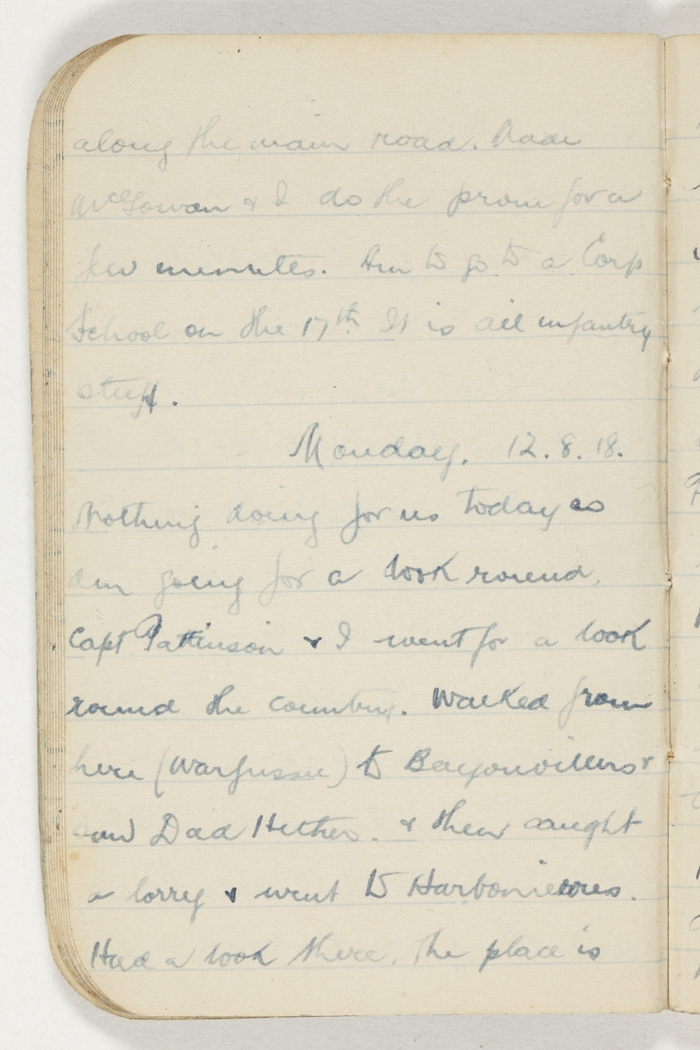 along the main road. Dade
McGowan & I do the prom for a
few minutes. Am to go to a Corp
School on the 17th It is all infantry
stuff.
Monday. 12.8.18.
Nothing doing for us today so
am going for a look round.
Capt Pattinson & I went for a look
round the country. Walked from
here (Warfusee) to Bayonvillers &
saw Dad Hether. & then caught
a lorry & went to Harbonieres.
Had a look there. The place is